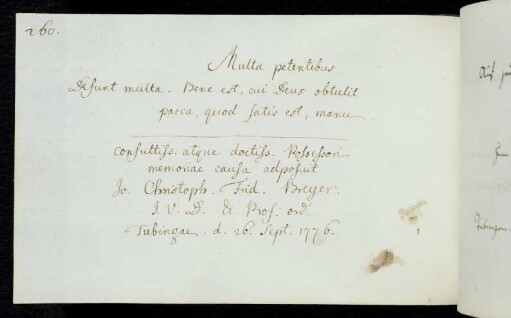 260.
Multa petentibus
Desunt multa. Bene est, cui Deus obtulit
parca, quod satis est, manu.
Consultiss. atque doctiss. Possessori
memoriae causa adposuit
Jo. Christoph. Frid. Breyer.
I. V. D. & Prof. ord.
Tubingae. d. 26. Sept. 1776.
Auf
Tübingen.